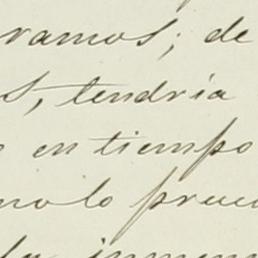 ramos; de
s, tendría
en tiempo
no lo preci
la inmen